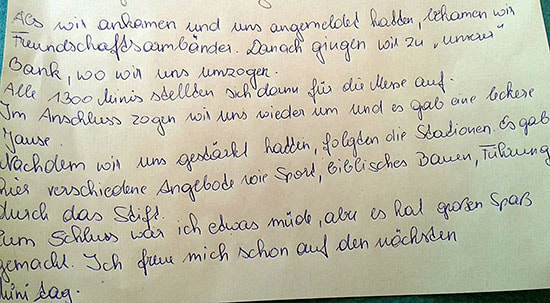 Als wir ankamen und uns angemeldet hatten, bekamen wir
Freundschaftsarmbänder. Danach gingen wir zu "unserer"
Bank, wo wir uns umzogen.
Alle 1300 Minis stellten sich dann für die Messe auf.
Im Anschluss zogen wir uns wieder um und es gab eine leckere
Jause.
Nachdem wir uns gestärkt hatten, folgten die Stationen. Es gab
hier verschiedene Angebote wie Sport, Biblisches Bauen, Führung
durch das Stift.
Zum Schluss war ich etwas müde, aber es hat großen Spaß
gemacht. Ich freue mich schon auf den nächsten
Minitag.